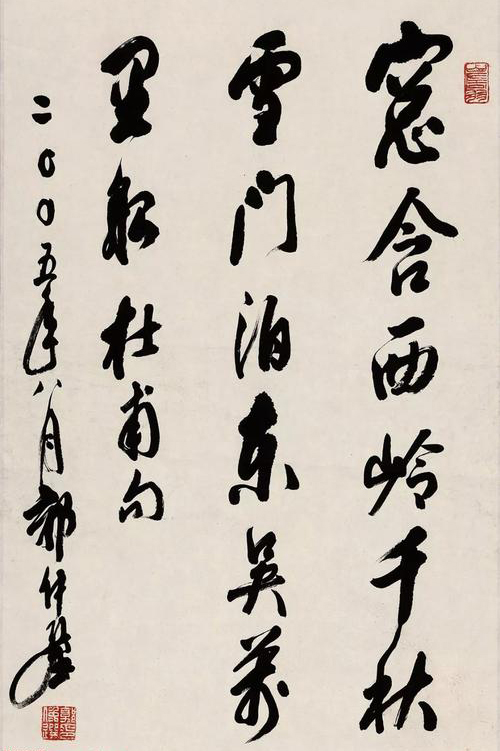 窓含西岭千秋
雪门泊东吴萬
里船杜甫句
二〇〇五年八月郭仲選